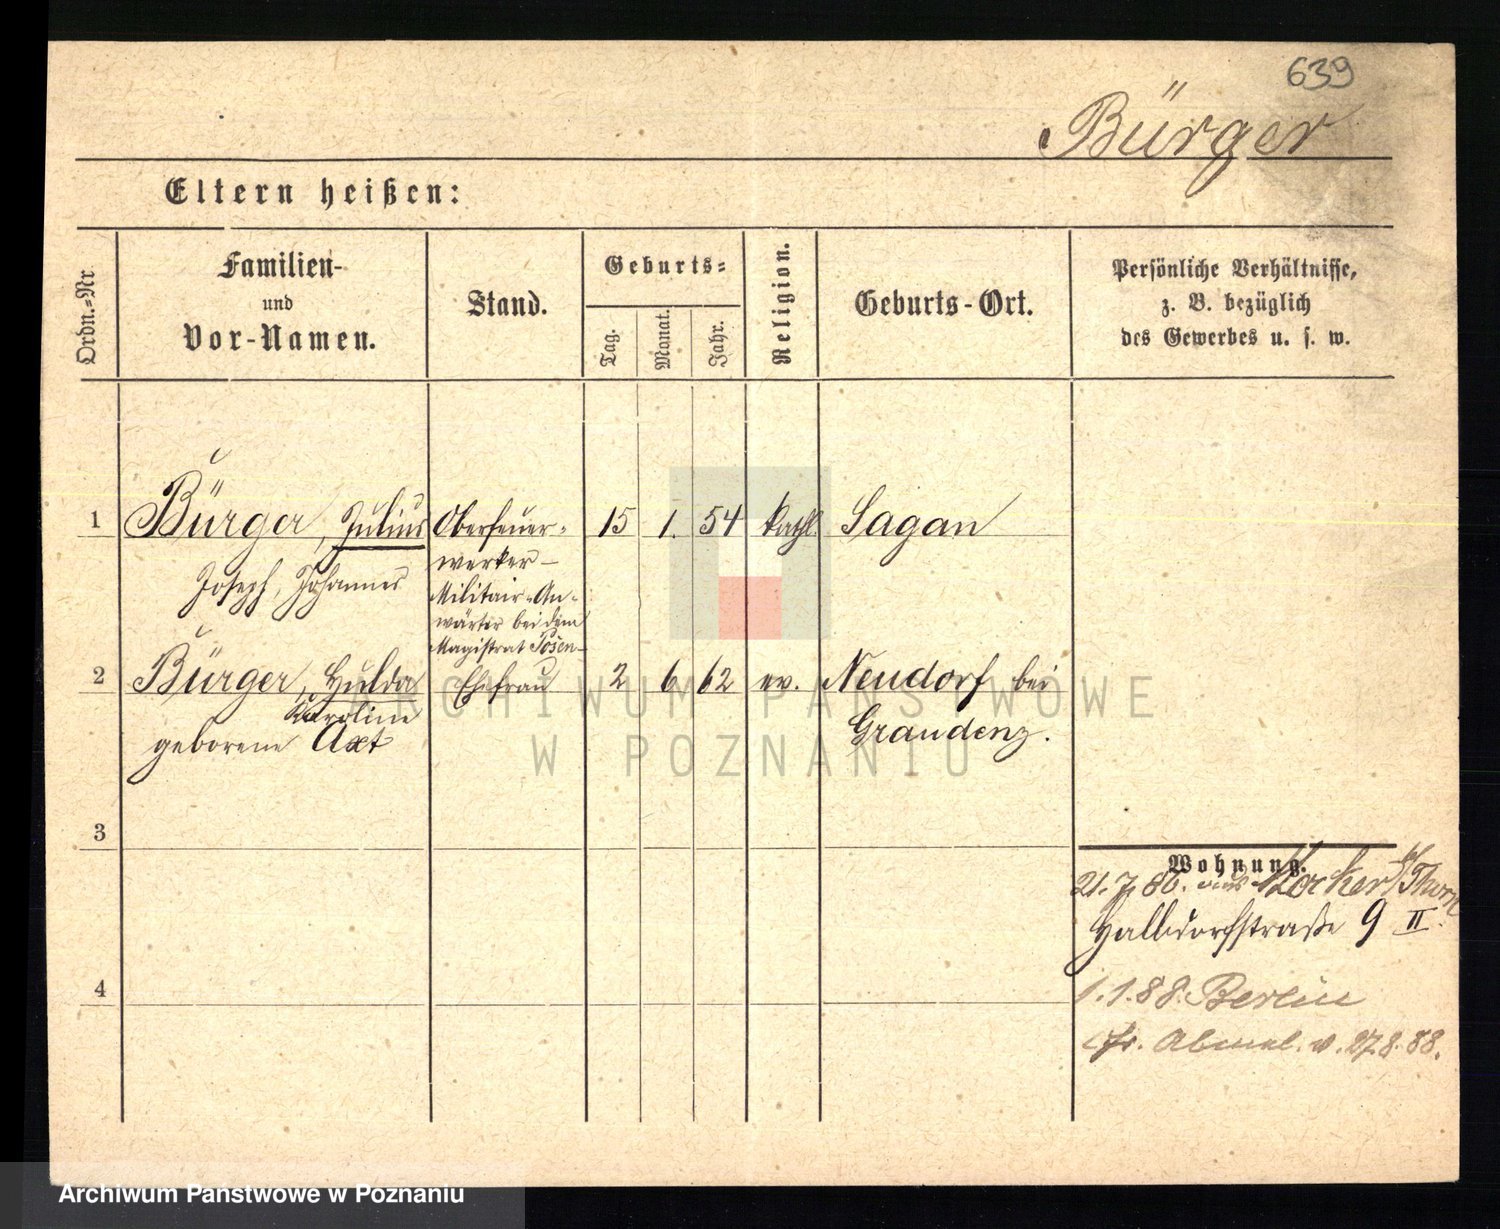 639
Bürger
Eltern heißen:
Ordn.-Nr
Familien-
und
Vor-Namen.
Stand.
Geburts-
Tag.
Monat.
Jahr.
Religion.
Geburts-Ort.
Persönliche Verhältnisse,
z. B. bezüglich
des Gewerbes u. s. w.
1 Bürger, Julius Oberfeuer- 15 1. 54 kathl. Sagan
Joseph, Johannes
werker-
Militair-An-
wärter bei dem
Magistrat Posen-
2 Bürger, Hulda Ehefrau 2 6 62 ev. Neudorf bei
Karoline
geborene Axt
Graudenz.
3
4
Wohnung.
21.7.86. aus Mocker b/Thorn
Halbdorfstraße 9 II.
1.1.88. Berlin
cfr. Abmel. v. 27.8.88.
ARCHIWUM PAŃSTWOWE
W POZNANIU
Archiwum Państwowe w Poznaniu